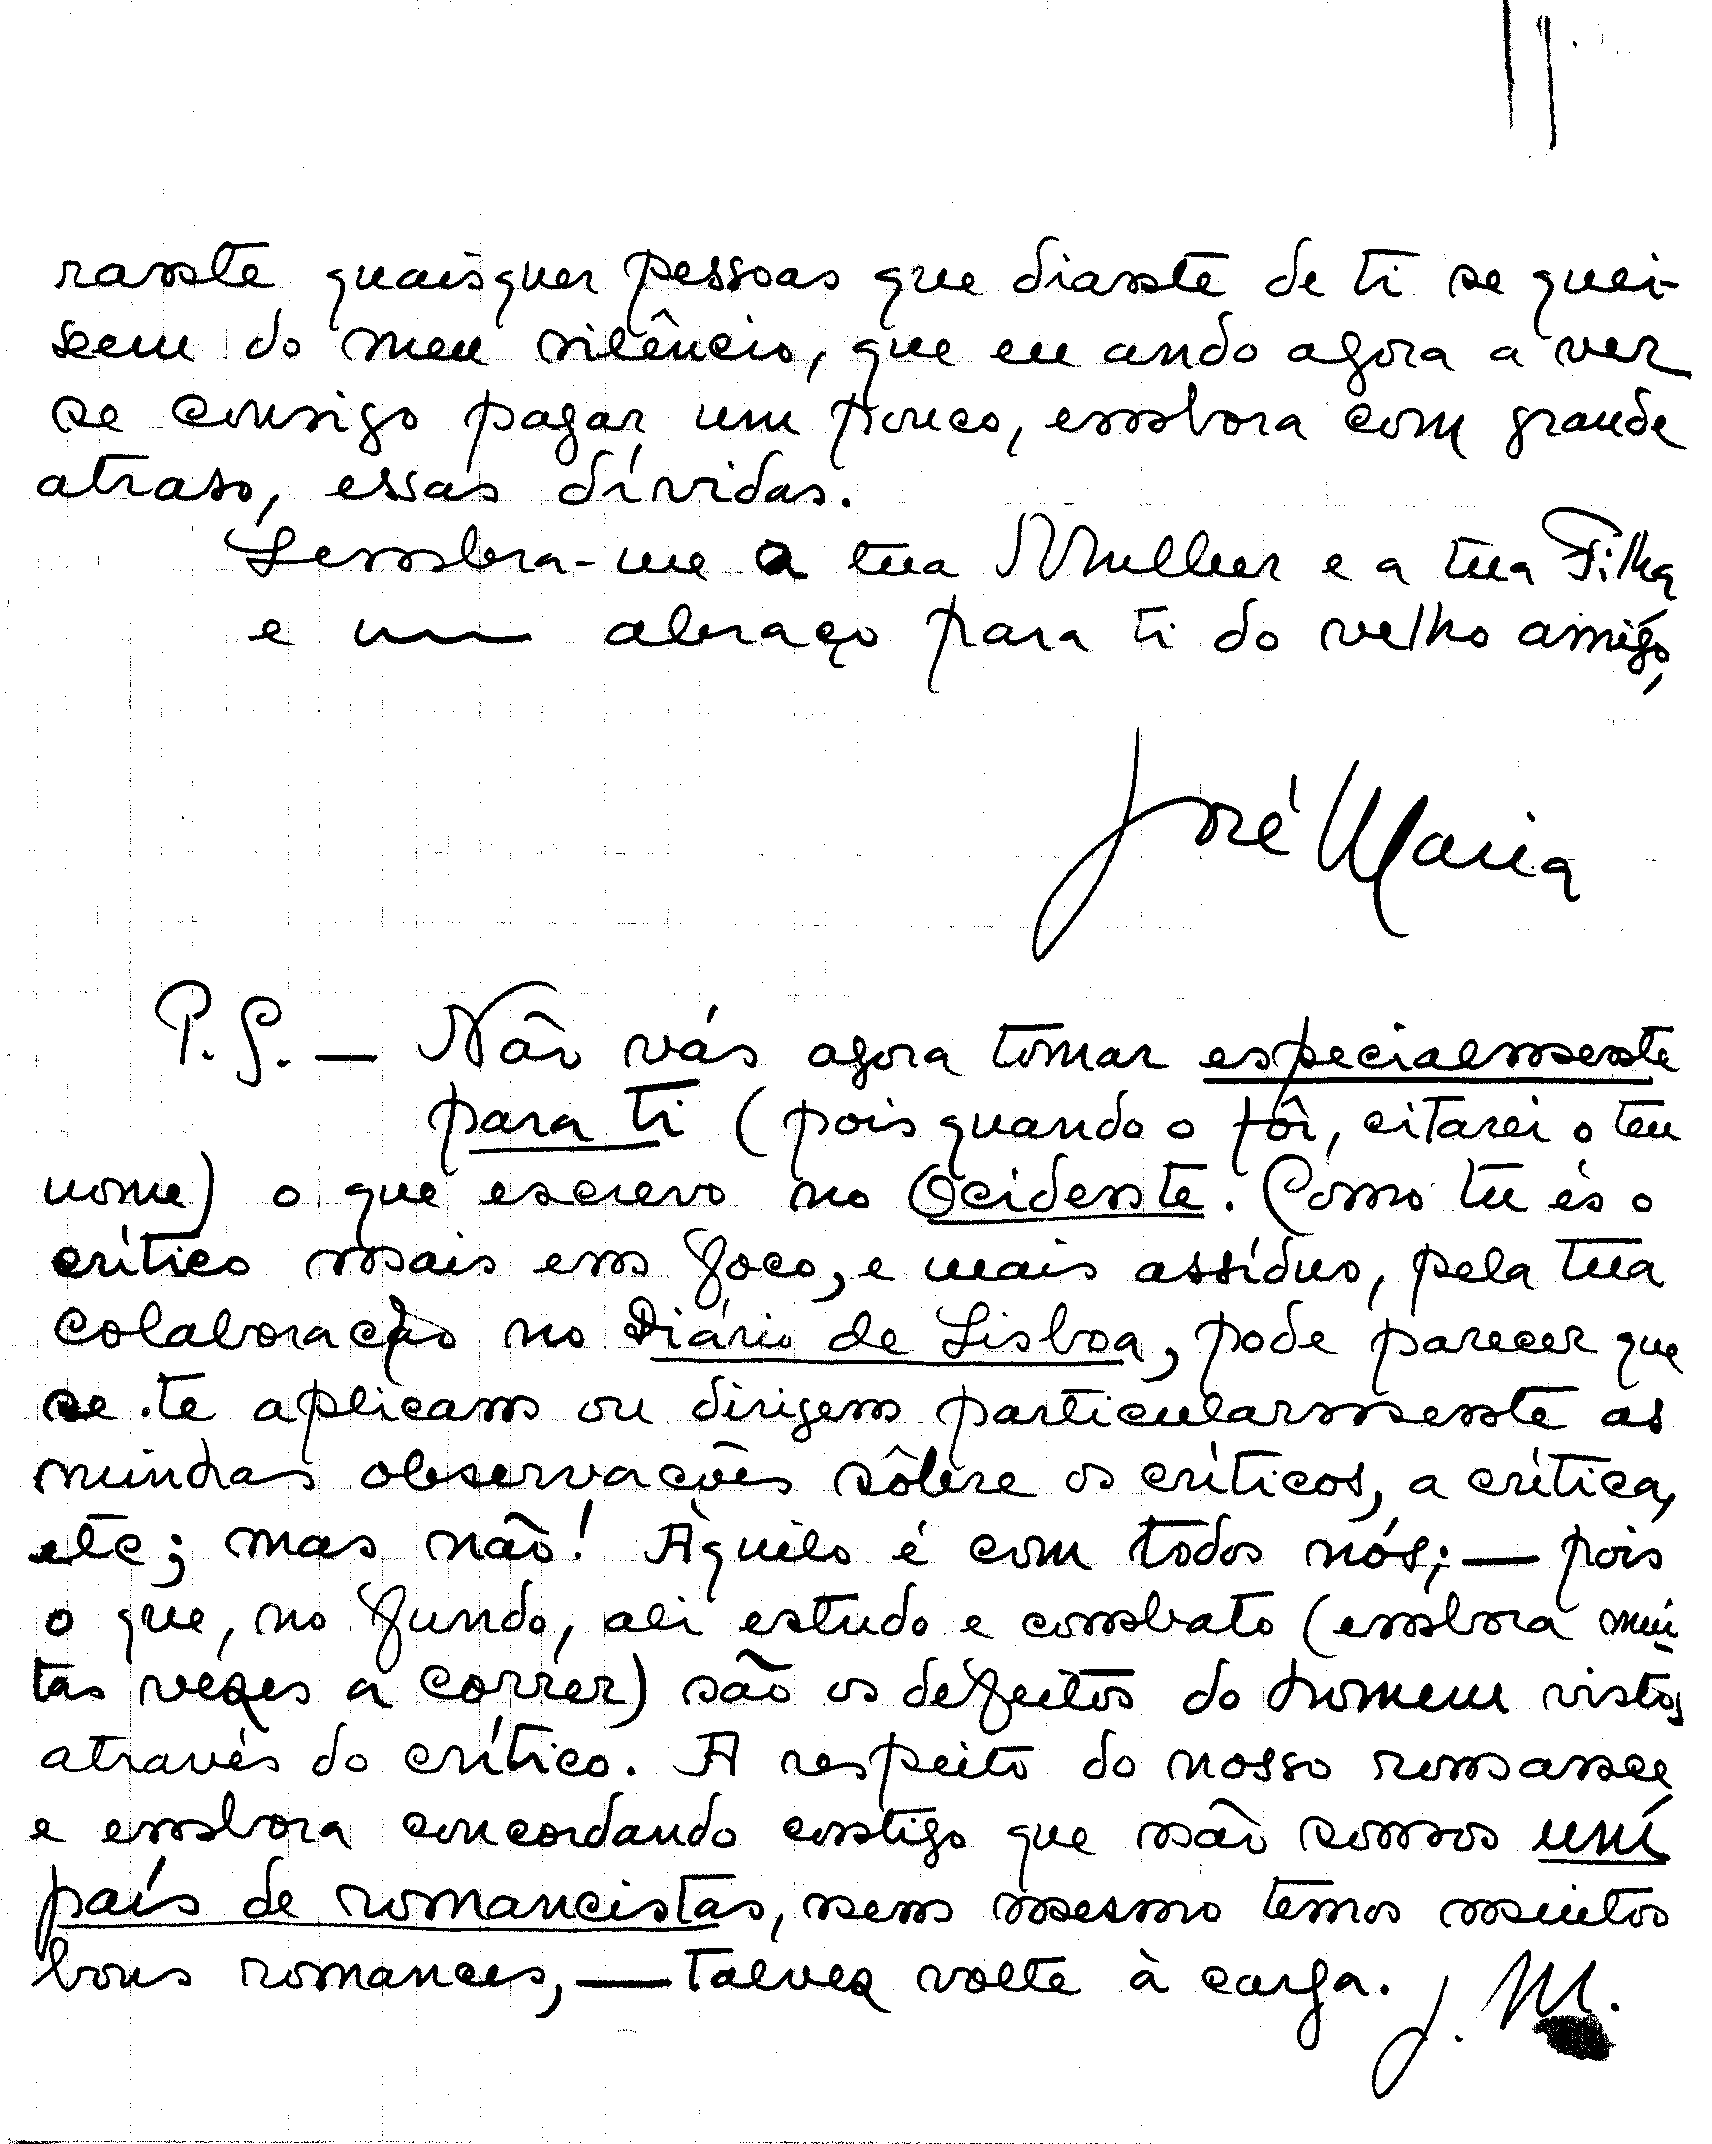 rante quaisquer pessoas que diante de ti se quei-
xem do meu silêncio, que eu ando agora a ver
se consigo pagar um pouco, embora com grande
atraso, essas dívidas.
Lembra-me a tua Mulher e a tua Filha
e um abraço para ti do velho amigo,
José Maria
P.S. — Não vás agora tomar especialmente
para ti (pois quando o fôr, citarei o teu
nome) o que escrevo no Ocidente. Como tu és o
crítico mais em foco, e mais assíduo, pela tua
colaboração no Diário de Lisboa, pode parecer que
se te aplicam ou dirigem particularmente as
minhas observações sôbre os críticos, a crítica,
etc; mas não! Àquilo é com todos nós; — pois
o que, no fundo, ali estudo e combato (embora mui-
tas vezes a correr) são os defeitos do homem vistos
através do crítico. A respeito do nosso romance
e embora concordando contigo que não somos um
país de romancistas, nem mesmo temos muitos
bons romances, — talvez volte à carga. J. M.